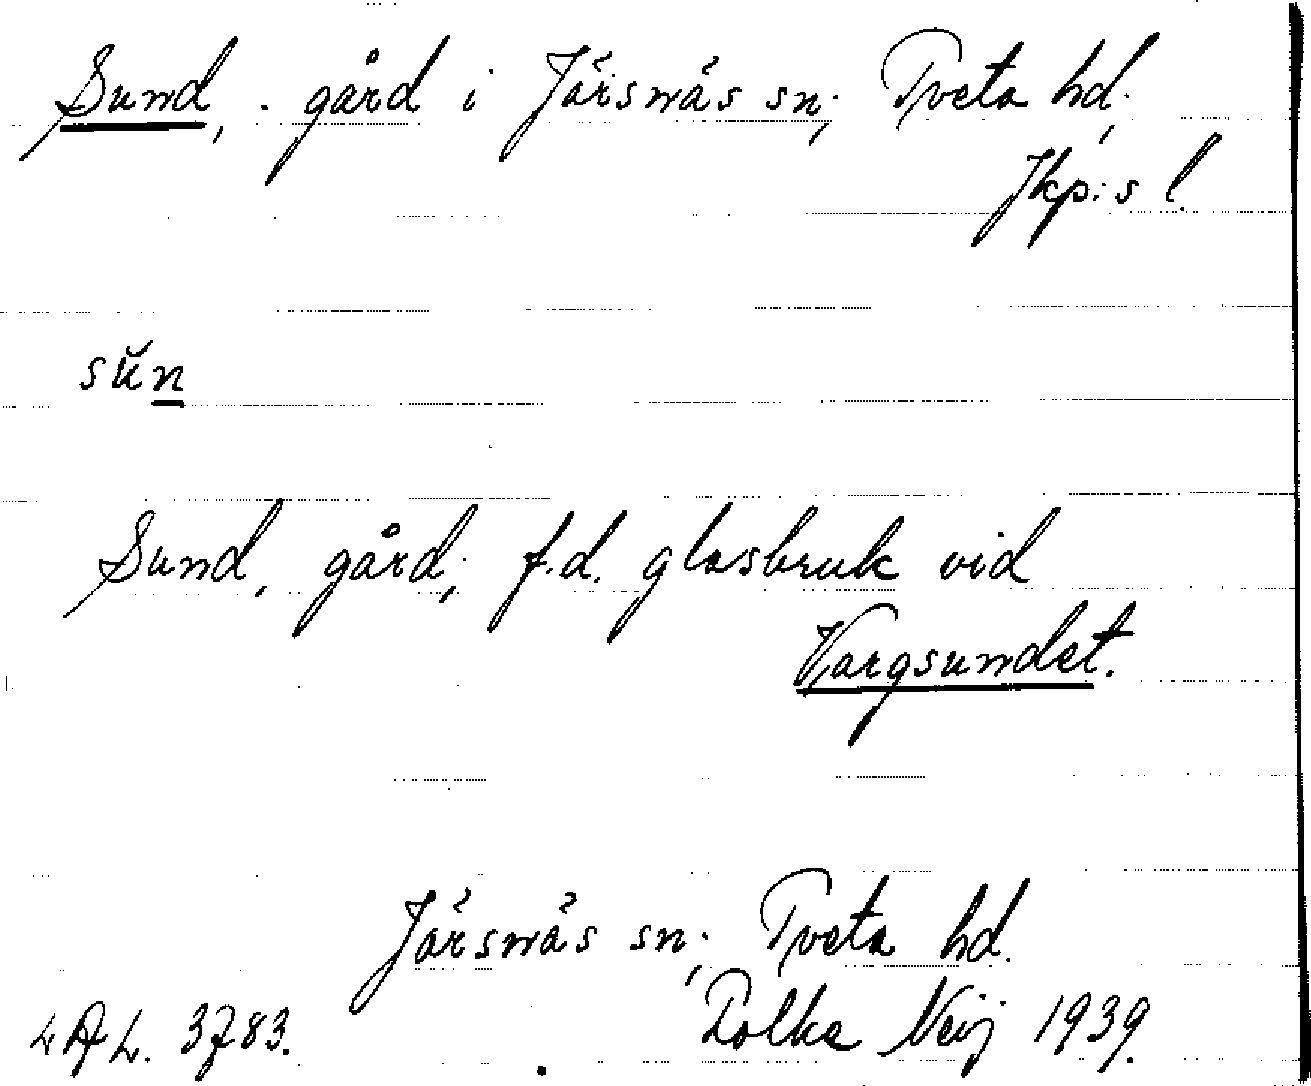 Sund, gård i Järsnäs sn; Tveta hd;
Jkp:s l.
sŭn
Sund, gård; f.d. glasbruk vid
Vargsundet.
Järsnäs sn; Tveta hd.
Tolke Neij 1939.
3783.